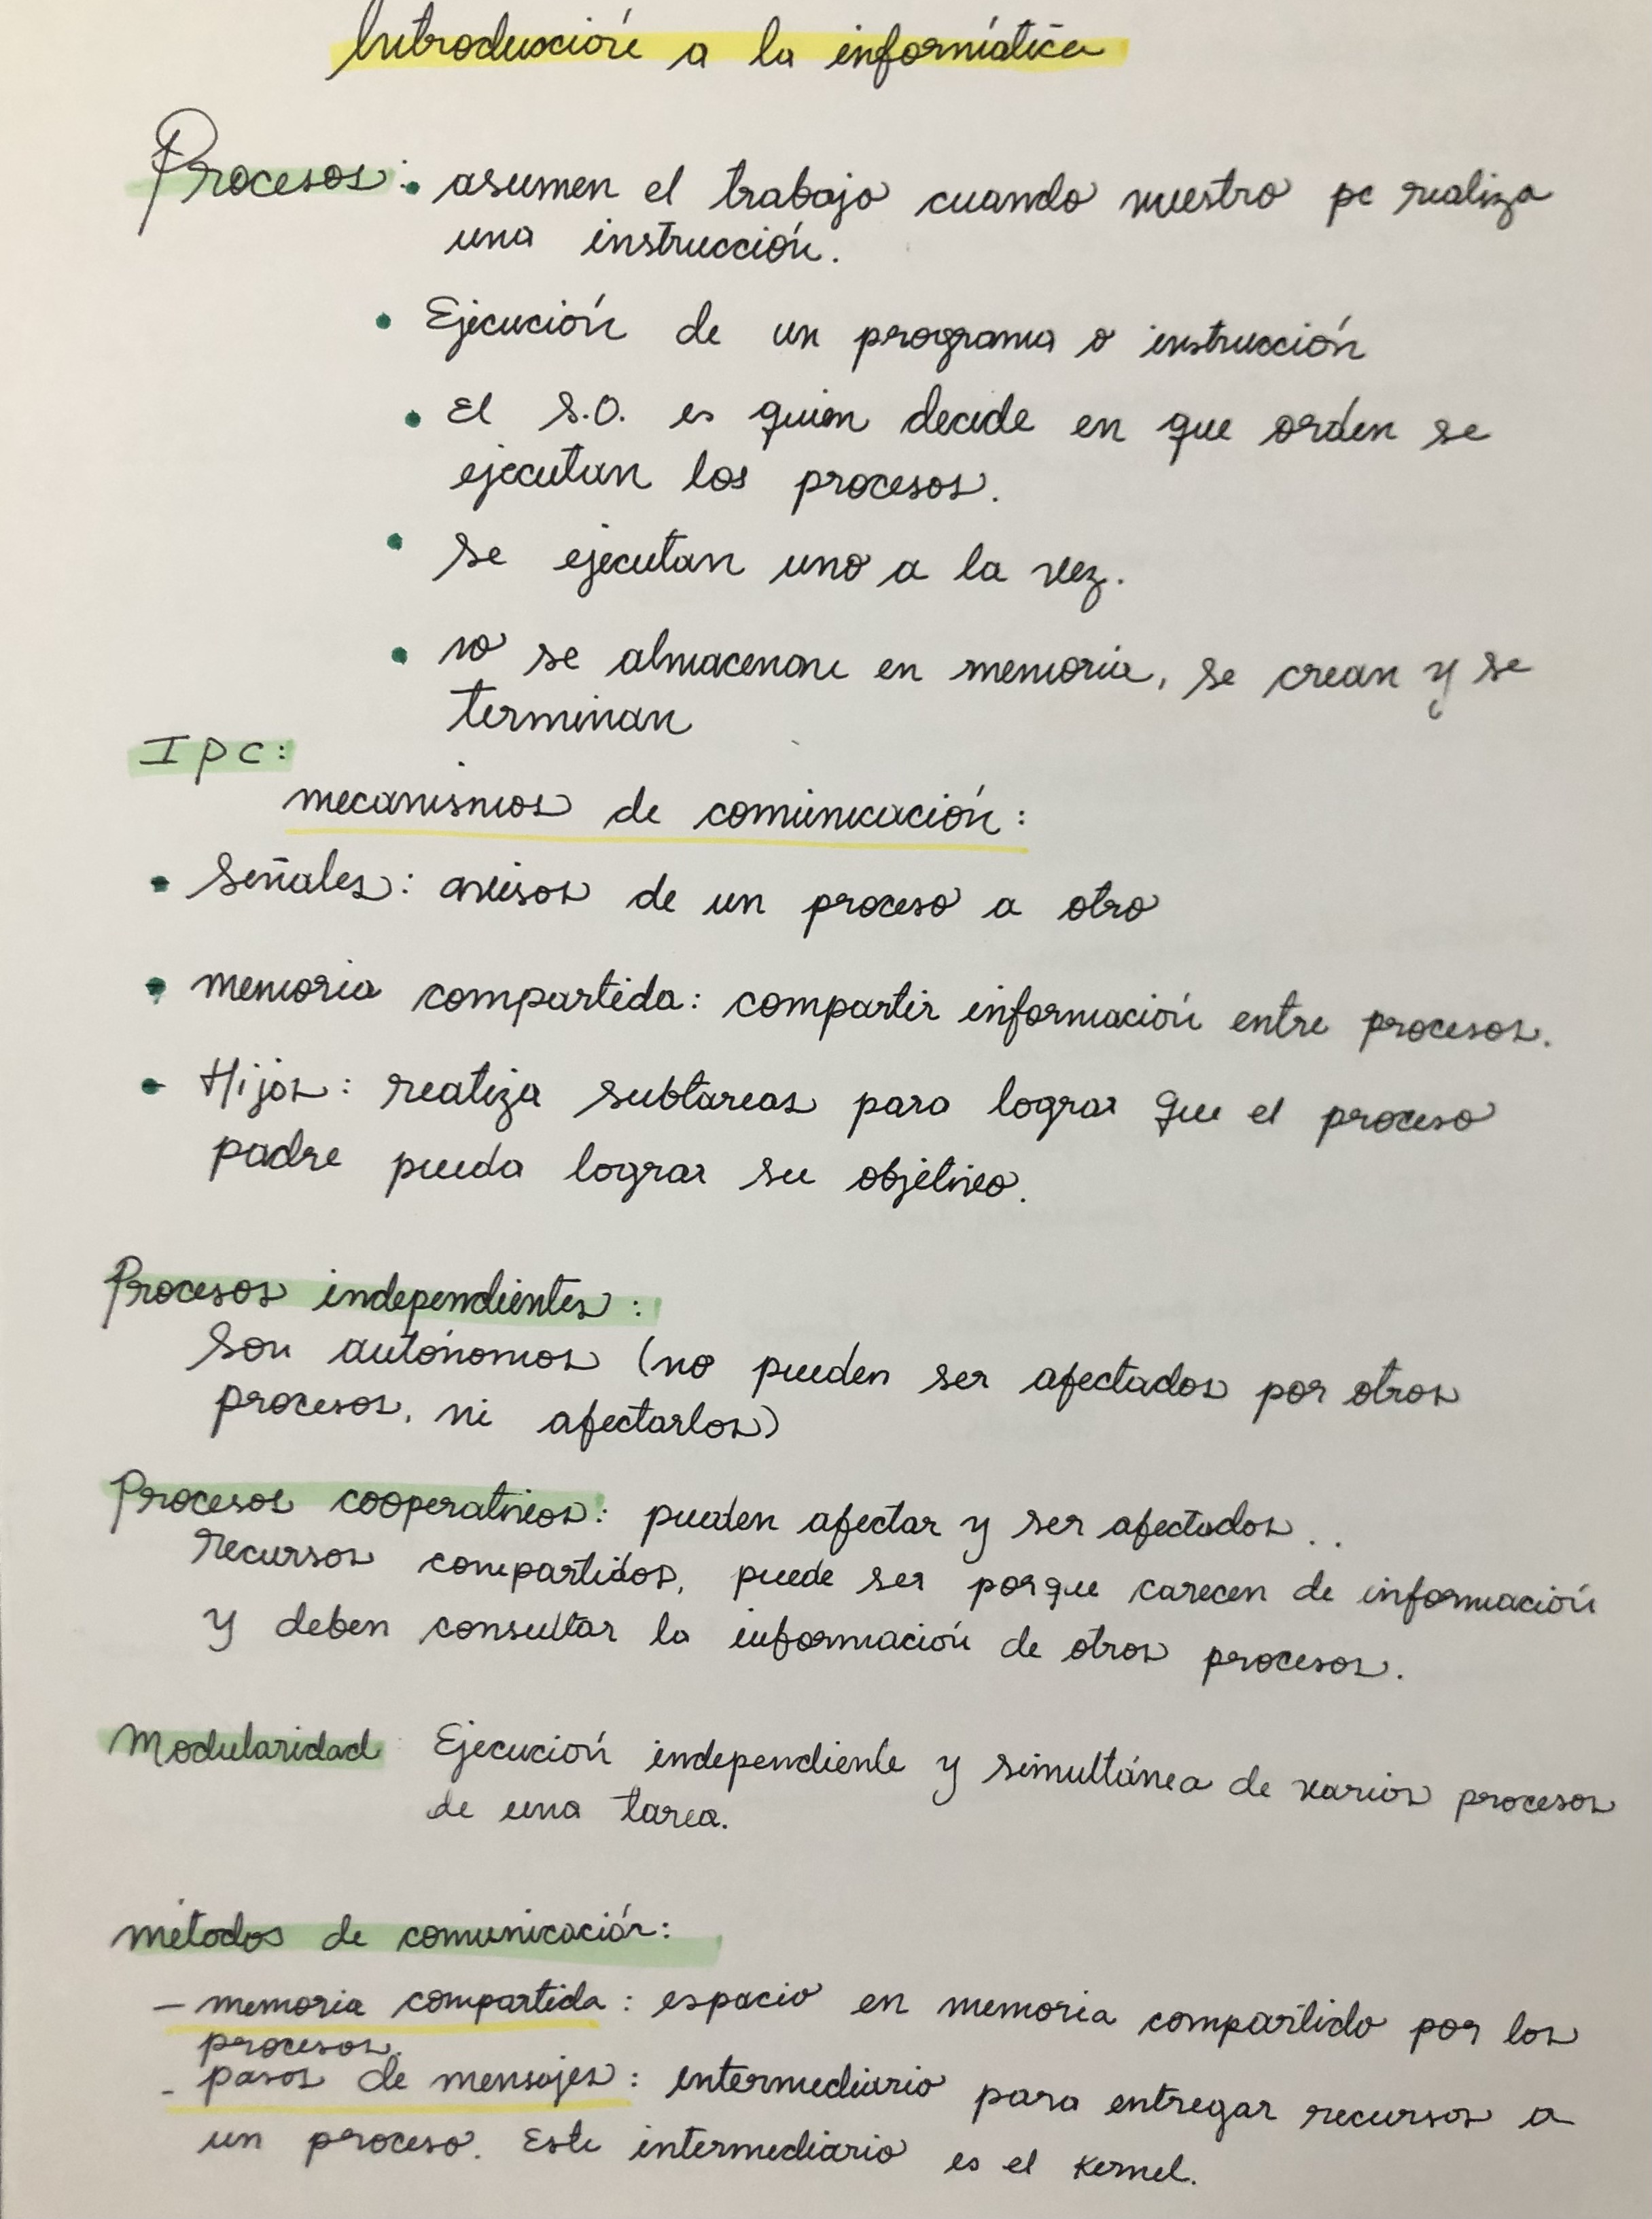 Introducción a la informática
Procesos: • asumen el trabajo cuando nuestro pc realiza
una instrucción.
• Ejecución de un programa o instrucción
• El S.O. es quien decide en que orden se
ejecutan los procesos.
• Se ejecutan uno a la vez.
• no se almacenan en memoria, se crean y se
terminan
Ipc:
mecanismos de comunicación:
• Señales: avisos de un proceso a otro
• memoria compartida: compartir información entre procesos.
• Hijos: realiza subtareas para lograr que el proceso
padre pueda lograr su objetivo.
Procesos independientes:
Son autónomos (no pueden ser afectados por otros
procesos, ni afectarlos)
Procesos cooperativos: pueden afectar y ser afectados..
recursos compartidos, puede ser porque carecen de información
y deben consultar la información de otros procesos.
Modularidad: Ejecución independiente y simultánea de varios procesos
de una tarea.
métodos de comunicación:
– memoria compartida: espacio en memoria compartido por los
procesos.
- pasos de mensajes: intermediario para entregar recursos a
un proceso. Este intermediario es el kernel.